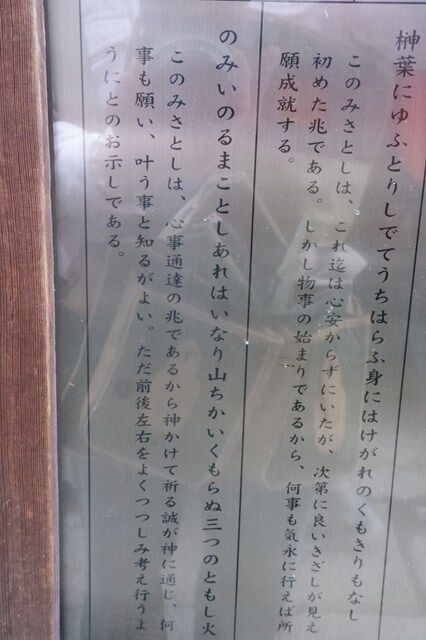 榊葉にゆふとりしでてうちはらふ身にはけがれのくもきりもなし
このみさとしは、これ迄は心安からずにいたが、次第に良いきざしが見え
初めた兆である。しかし物事の始まりであるから、何事も気永に行えば所
願成就する。
のみいのるまことしあれはいなり山ちかいくもらぬ三つのともし火
このみさとしは、心事通達の兆であるから神かけて祈る誠が神に通じ、何
事も願い、叶う事と知るがよい。ただ前後左右をよくつつしみ考え行うよ
うにとのお示しである。